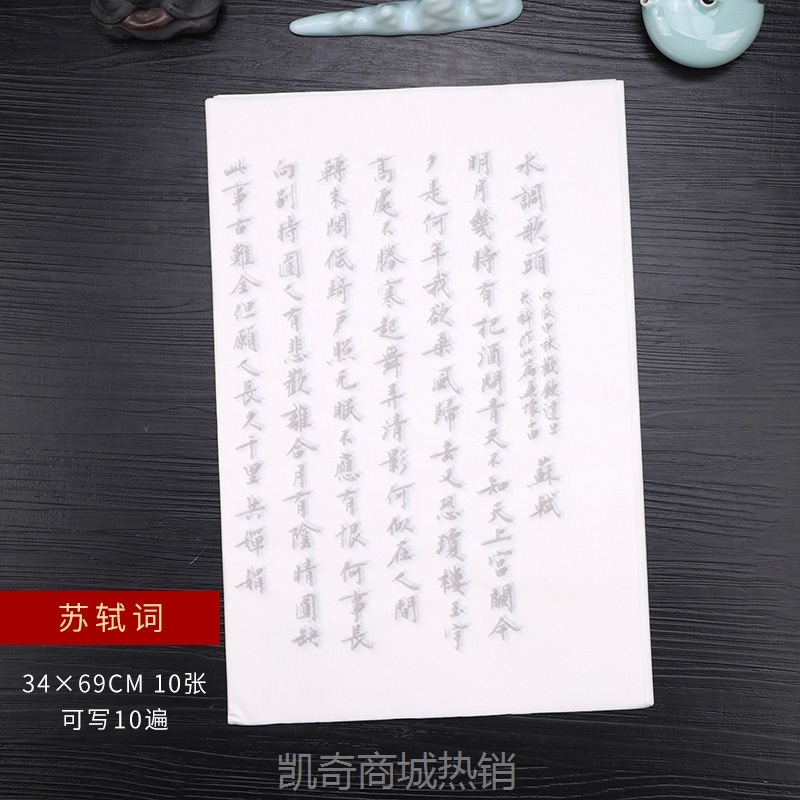 水調歌頭 丙辰中秋歡飲達旦
大醉作此篇兼懷子由 蘇軾
明月幾時有把酒問青天不知天上宮闕今
夕是何年我欲乘風歸去又恐瓊樓玉宇
高處不勝寒起舞弄清影何似在人間
轉朱閣低綺戶照无眠不應有恨何事長
向別時圓人有悲歡離合月有陰晴圓缺
此事古難全但願人長久千里共嬋娟
苏轼词
34×69CM 10张
可写10遍
凯奇商城热销